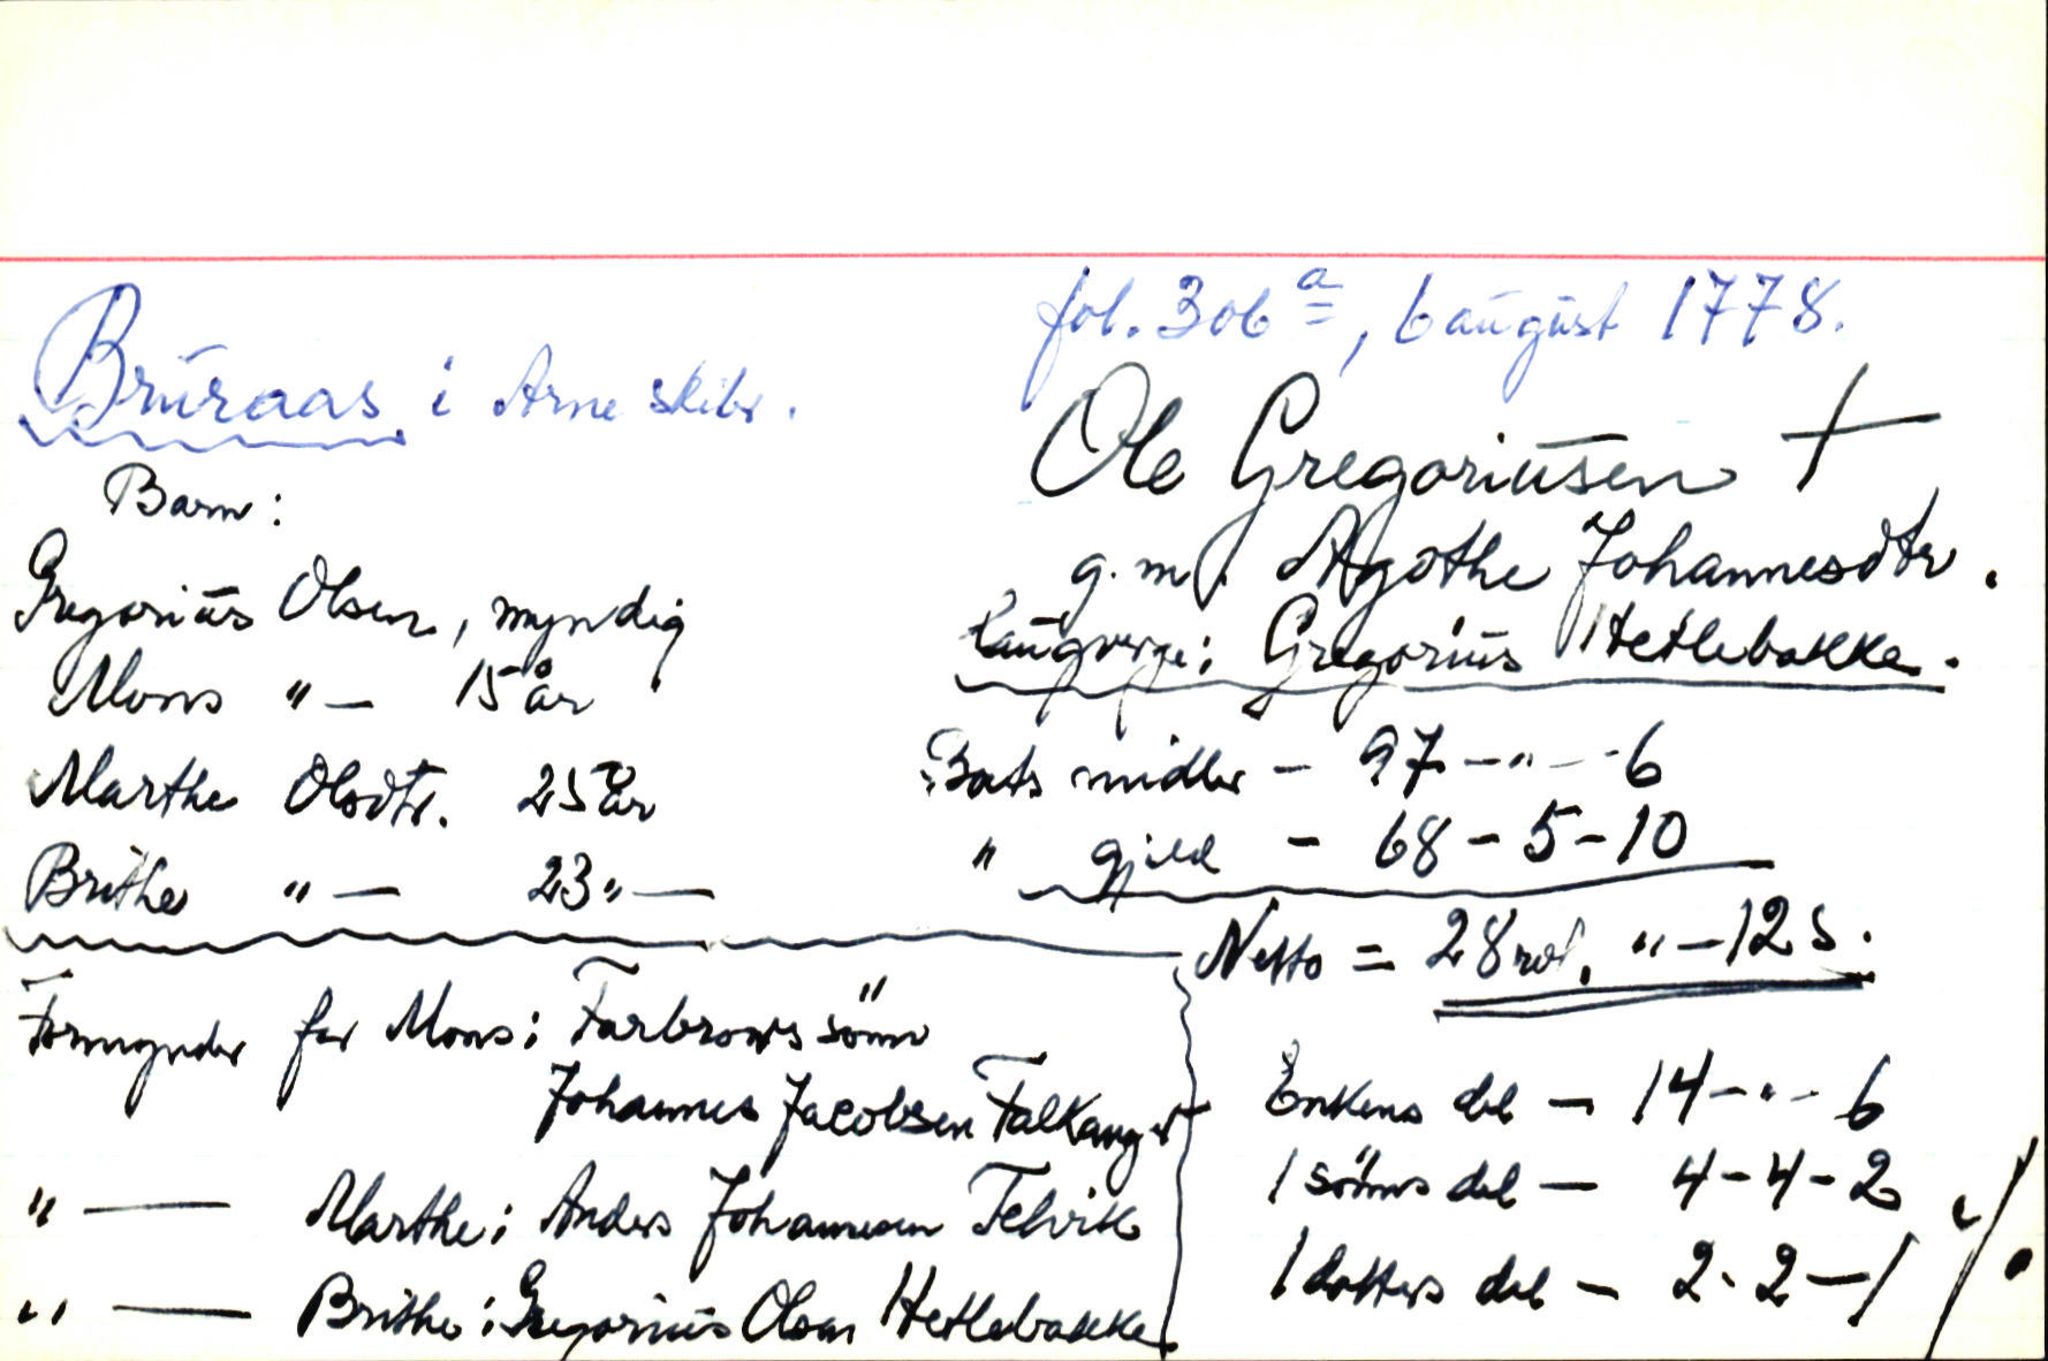 fol. 306a, 6 august 1778.
Bruraas i Arne skibr.
Ole Gregoriusen †
g. m. Agothe Johannesdtr.
Laugverge: Gregorius Hetlebakke.
Barn:
Gregorius Olsen, myndig
Mons " — 15 år
Marthe Olsdtr. 25 år
Brithe " — 23 " —
Boets midler - 97 - " - 6
" gjeld - 68 - 5 - 10
Netto = 28 rd. " - 12 s.
Formynder for Mons: Farbrors sønn
Johannes Jacobsen Falkanger
" — Marthe: Anders Johannesen Telvik
" — Brithe: Gregorius Olsen Hetlebakke
Enkens del - 14 - " - 6
1 sønns del - 4 - 4 - 2
1 dotters del - 2 - 2 - 1